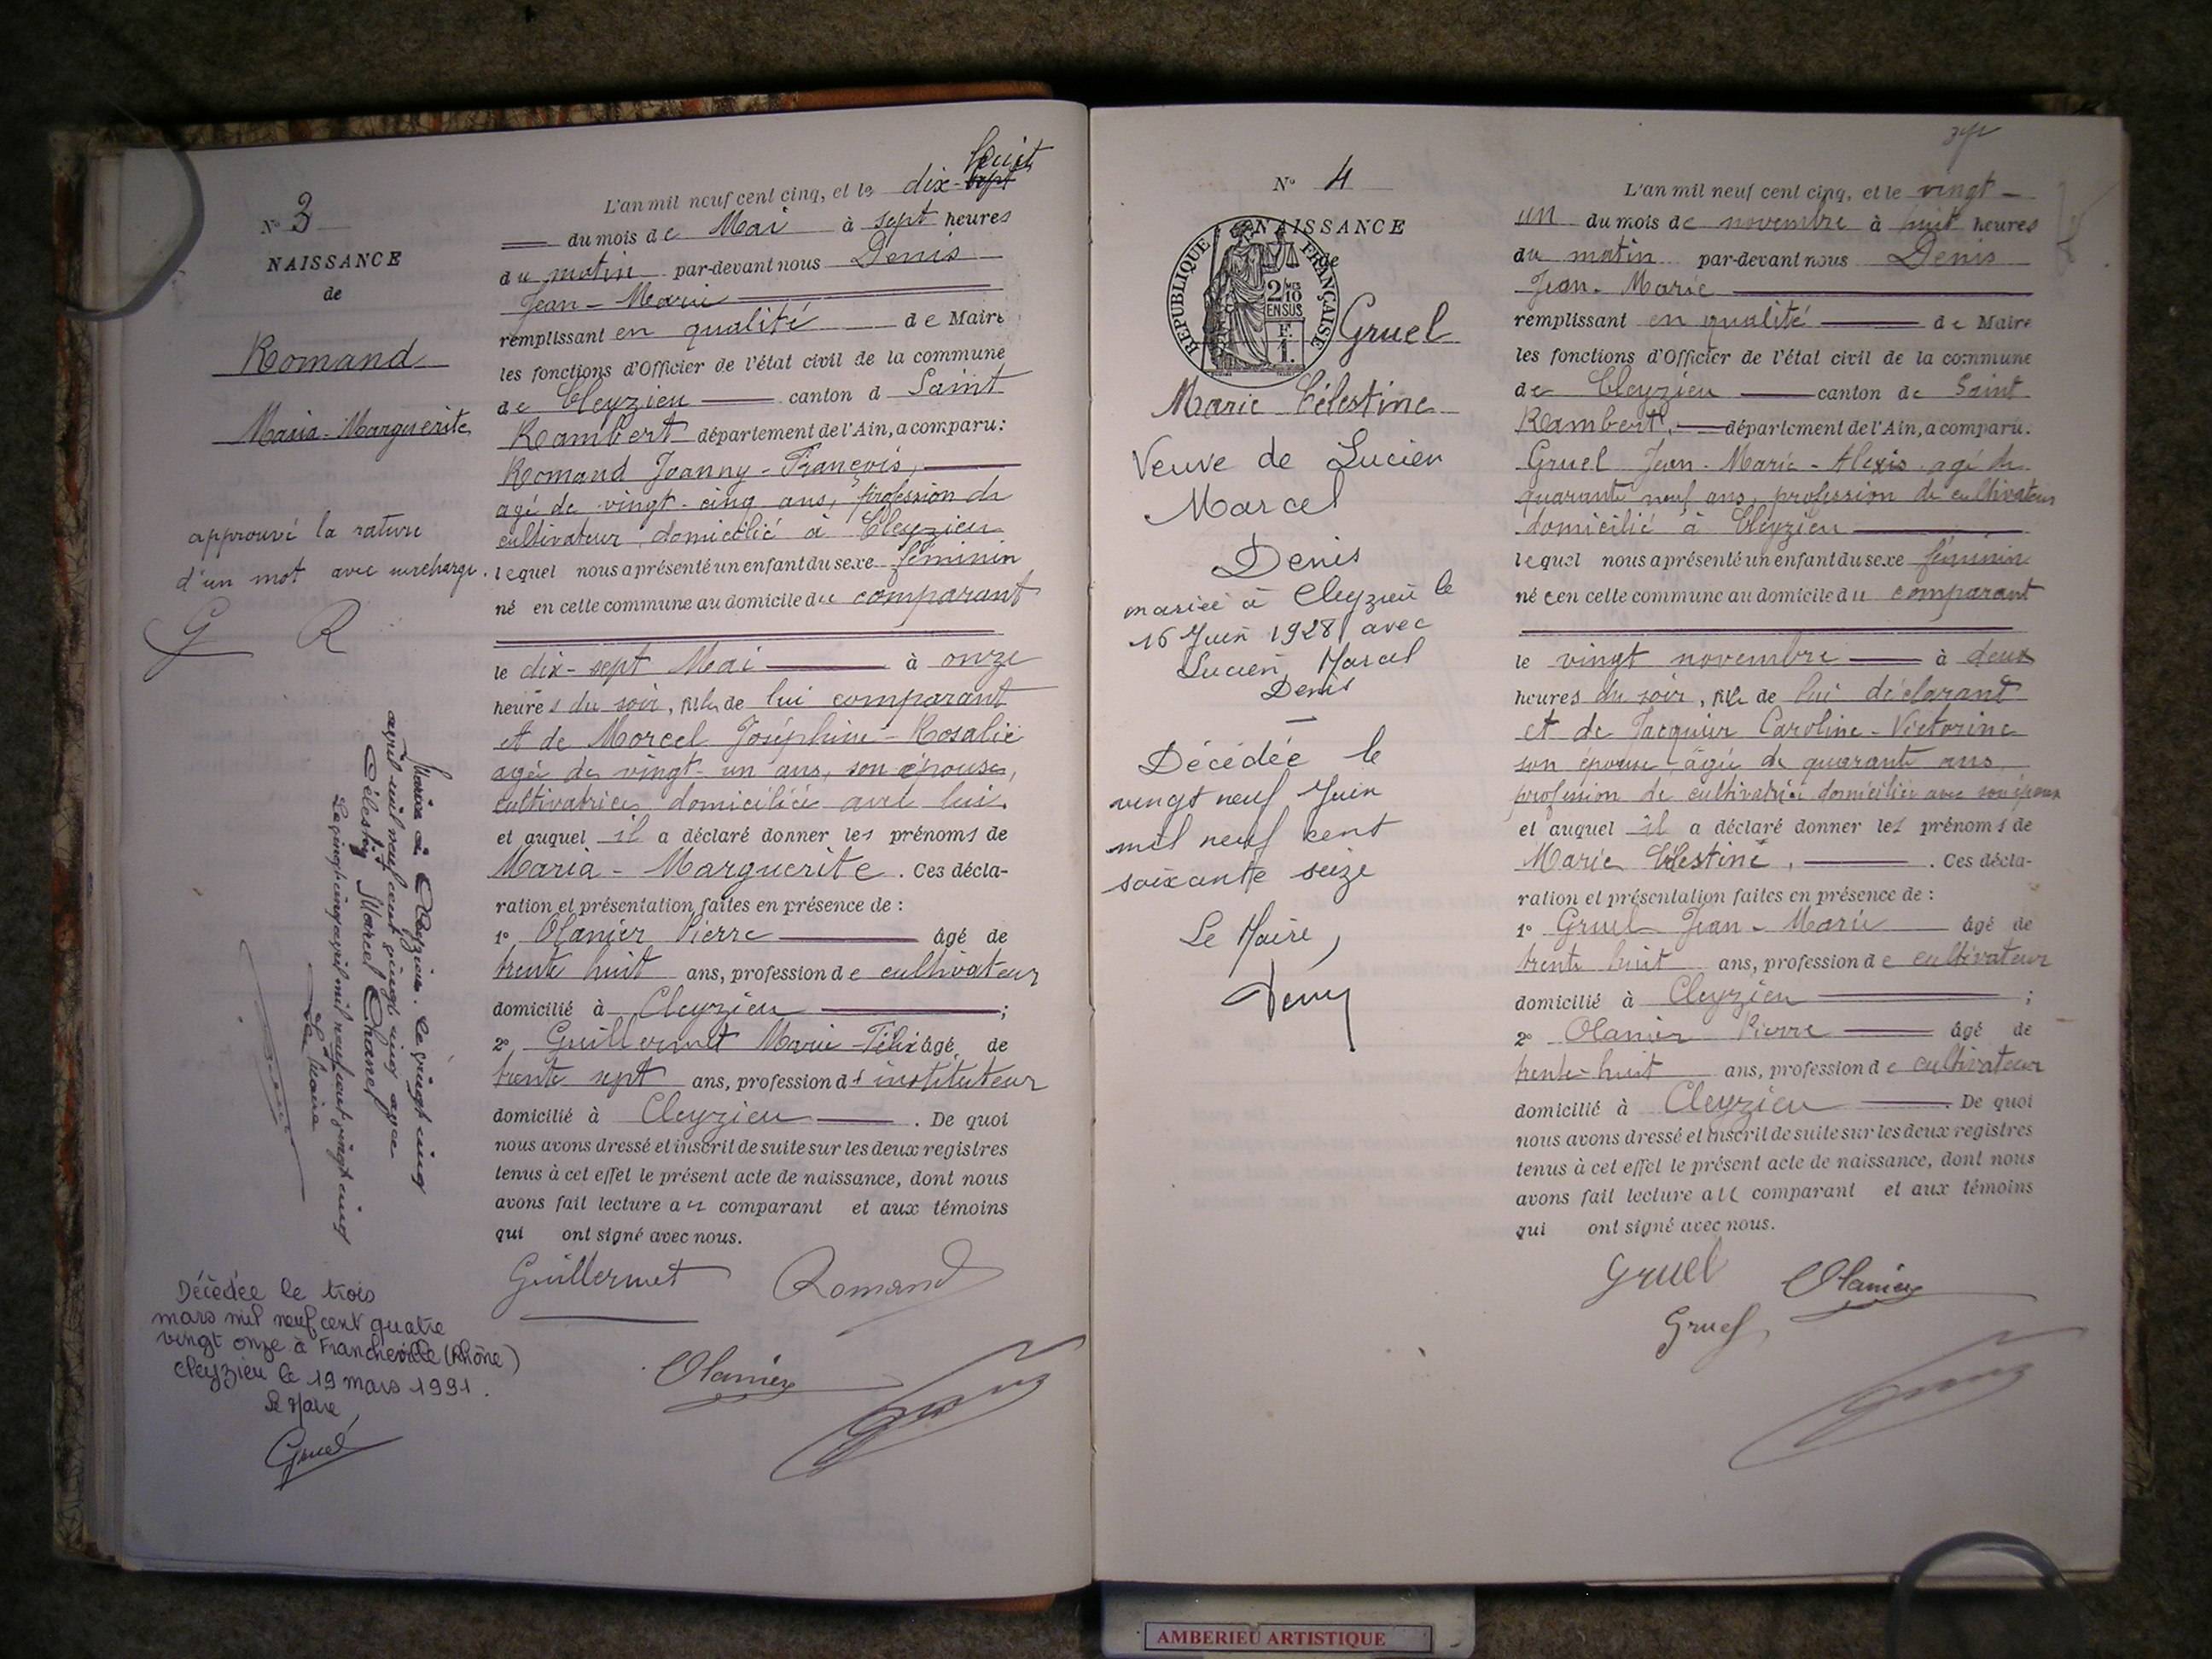 N° 3
NAISSANCE
de
Romand
Maria-Marguerite
approuvé la rature
d'un mot avec surcharge.
G R
Mariée à Cleyzieu le vingt cinq
avril mil neuf cent vingt cinq avec
Célestin Marcel Chanel
Le vingt cinq avril mil neuf cent vingt cinq
Le Maire
Décédée le trois
mars mil neuf cent quatre
vingt onze à Francheville (Rhône)
Cleyzieu le 19 mars 1991.
Le Maire,
Gruel
huit
L'an mil neuf cent cinq, et le dix-sept
du mois de Mai à sept heures
du matin par-devant nous Denis
Jean-Marie
remplissant en qualité de Maire
les fonctions d'Officier de l'état civil de la commune
de Cleyzieu canton d Saint
Rambert département de l'Ain, a comparu:
Romand Joanny-François,
agé de vingt-cinq ans, profession de
cultivateur domicilié à Cleyzieu
lequel nous a présenté un enfant du sexe féminin
né en cette commune au domicile du comparant
le dix-sept Mai à onze
heures du soir, fille de lui comparant
et de Morcel Joséphine-Rosalie
agée de vingt-un ans, son épouse,
cultivatrice domiciliée avec lui.
et auquel il a déclaré donner les prénoms de
Maria-Marguerite. Ces décla-
ration et présentation faites en présence de :
1° Olanier Pierre âgé de
trente huit ans, profession de cultivateur
domicilié à Cleyzieu ;
2° Guillermet Marie-Félix âgé de
trente sept ans, profession d' instituteur
domicilié à Cleyzieu . De quoi
nous avons dressé et inscrit de suite sur les deux registres
tenus à cet effet le présent acte de naissance, dont nous
avons fait lecture au comparant et aux témoins
qui ont signé avec nous.
Guillermet Romand
Olanier
N° 4
NAISSANCE
de
REPUBLIQUE FRANÇAISE
2/10
EN SUS
F.
1.
Gruel
Marie Célestine
Veuve de Lucien
Marcel
Denis
mariée à Cleyzieu le
16 Juin 1928 avec
Lucien Marcel
Denis
Décédée le
vingt neuf Juin
mil neuf cent
soixante seize
Le Maire,
L'an mil neuf cent cinq, et le vingt-
un du mois de novembre à huit heures
du matin par-devant nous Denis
Jean-Marie
remplissant en qualité de Maire
les fonctions d'Officier de l'état civil de la commune
de Cleyzieu canton de Saint
Rambert, département de l'Ain, a comparu.
Gruel Jean-Marie-Alexis agé de
quarante neuf ans, profession de cultivateur
domicilié à Cleyzieu
lequel nous a présenté un enfant du sexe féminin
né en cette commune au domicile du comparant
le vingt novembre à deux
heures du soir, fille de lui déclarant
et de Jacquier Caroline-Victorine
son épouse, âgée de quarante ans
profession de cultivatrice domiciliée avec son époux
et auquel il a déclaré donner les prénoms de
Marie Célestine, . Ces décla-
ration et présentation faites en présence de :
1° Gruel Jean-Marie âgé de
trente huit ans, profession de cultivateur
domicilié à Cleyzieu ;
2° Olanier Pierre âgé de
trente-huit ans, profession de cultivateur
domicilié à Cleyzieu . De quoi
nous avons dressé et inscrit de suite sur les deux registres
tenus à cet effet le présent acte de naissance, dont nous
avons fait lecture au comparant et aux témoins
qui ont signé avec nous.
Gruel Olanier
Gruel
AMBERIEU ARTISTIQUE